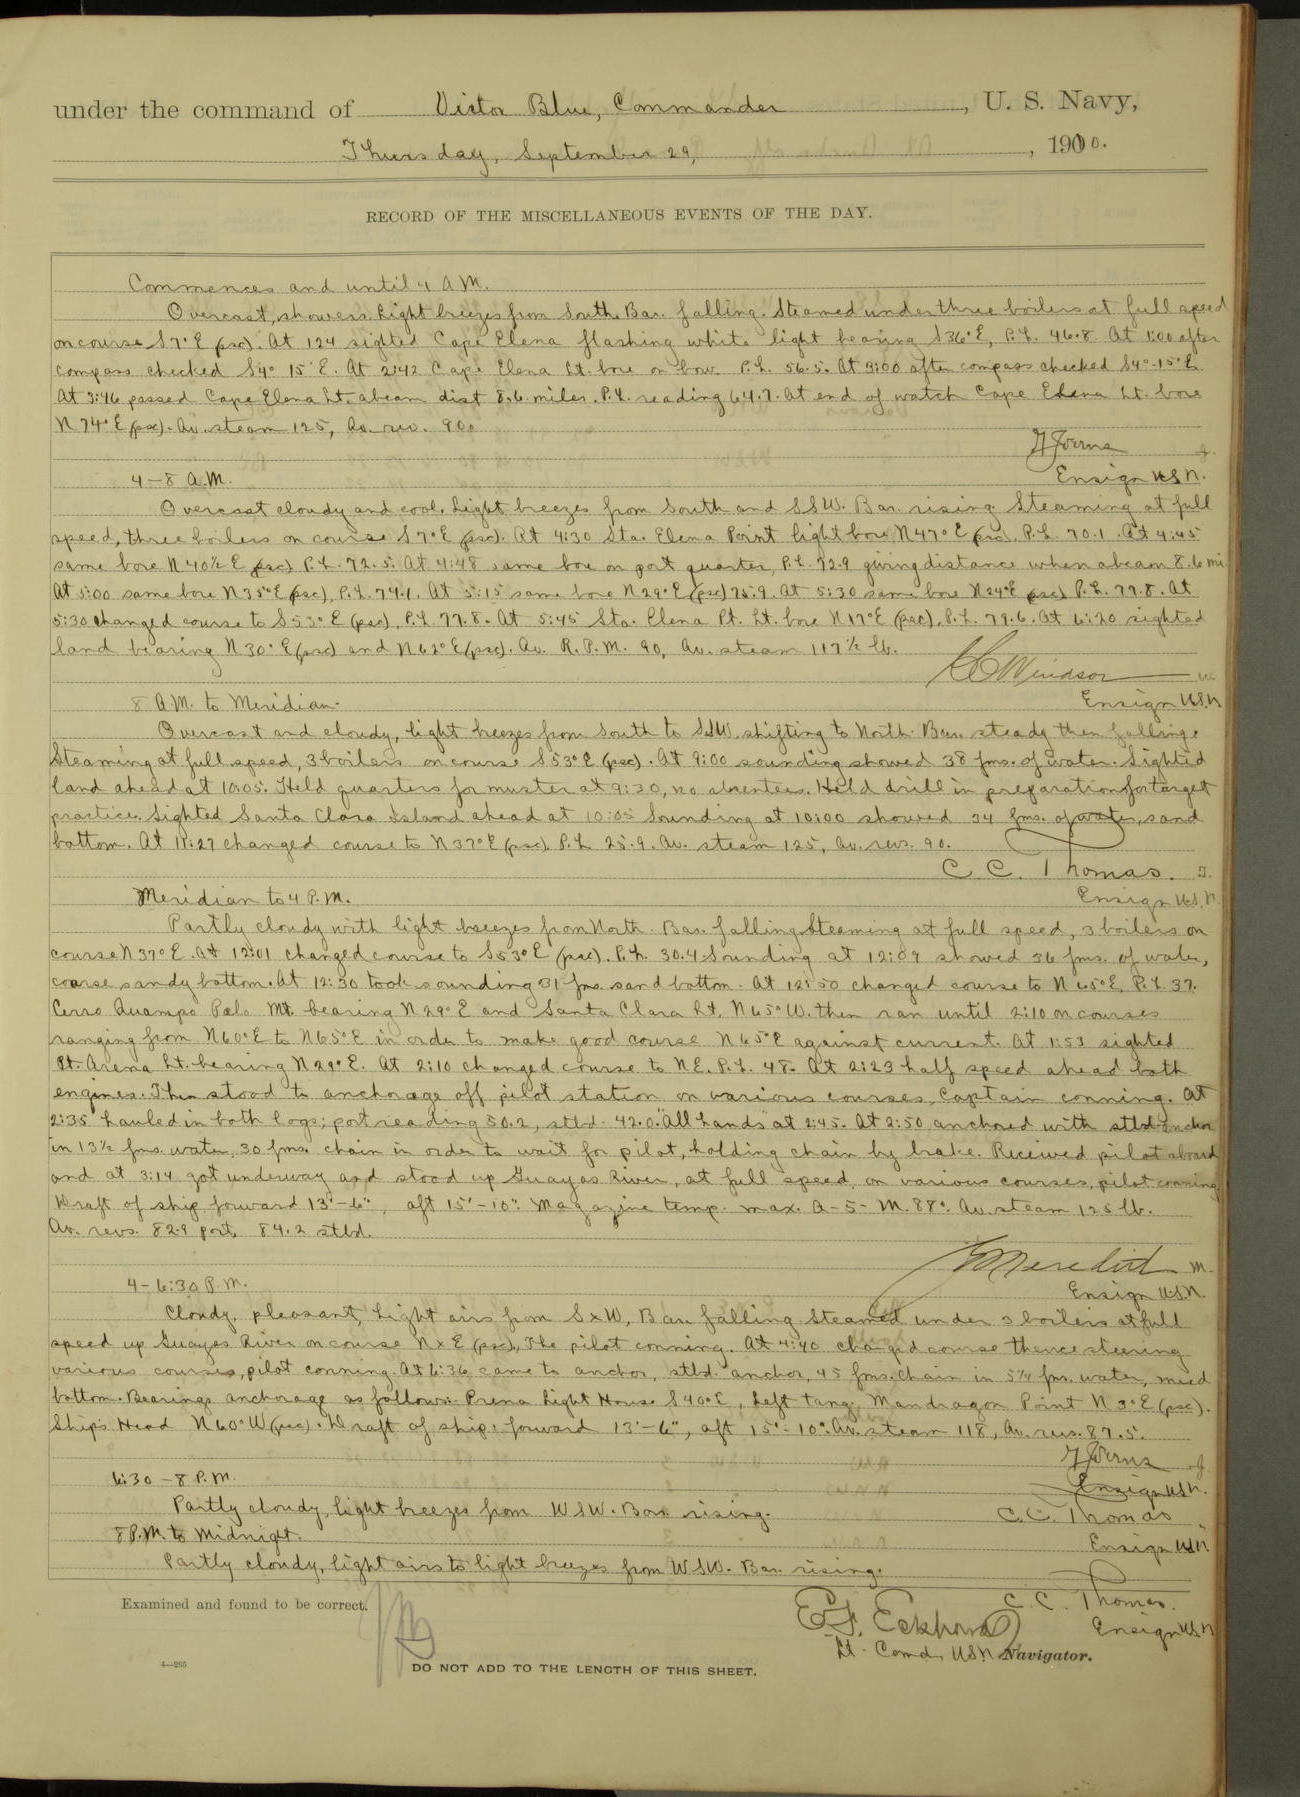 under the command of Victor Blue, Commander, U. S. Navy,
Thursday, September 29, 1910.
RECORD OF THE MISCELLANEOUS EVENTS OF THE DAY.
Commences and until 4 A.M.
Overcast, showers. Light breezes from South. Bar. falling. Steamed under three boilers at full speed
on course S 7° E (psc). At 1:24 sighted Cape Elena flashing white light bearing S 36° E, P.L. 46.8. At 1:00 after
compass checked S4° 15' E. At 2:42 Cape Elena Lt. bore on bow. P.L. 56.5. At 3:00 after compass checked S4°-15' E.
At 3:46 passed Cape Elena Lt. abeam dist 8.6 miles. P.L. reading 64.7. At end of watch Cape Elena Lt. bore
N 74° E (psc). Av. steam 125, Av. rev. 90.
Ensign U.S.N.
4-8 A.M.
Overcast cloudy and cool. Light breezes from South and SSW. Bar. rising. Steaming at full
speed, three boilers on course S 7° E (psc). At 4:30 Sta. Elena Point light bore N47° E (psc). P.L. 70.1. At 4:45
same bore N 40½ E (psc) P.L. 72.5. At 4:48 same bore on port quarter, P.L. 72.9 giving distance when abeam 8.6 mi.
At 5:00 same bore N35° E (psc), P.L. 74.1. At 5:15 same bore N29° E (psc) 75.9. At 5:30 same bore N24° E (psc) P.L. 77.8. At
5:30 changed course to S53° E (psc), P.L. 77.8. At 5:45 Sta. Elena Pt. Lt. bore N17° E (psc), P.L. 79.6. At 6:20 sighted
land bearing N 30° E (psc) and N62° E (psc). Av. R.P.M. 90, Av. steam 117½ lb.
Windsor
Ensign U.S.N
8 A.M. to Meridian.
Overcast and cloudy, light breezes from South to SSW. shifting to North. Bar. steady then falling.
Steaming at full speed, 3 boilers on course S53° E (psc). At 9:00 sounding showed 38 fms. of water. Sighted
land ahead at 10:05. Held quarters for muster at 9:30, no absentees. Held drill in preparation for target
practice. Sighted Santa Clara Island ahead at 10:05 Sounding at 10:00 showed 34 fms. of water, sand
bottom. At 11:27 changed course to N 37° E (psc). P.L. 25.9. Av. steam 125, Av. revs. 90.
C. C. Thomas.
Ensign U.S.N.
Meridian to 4 P.M.
Partly cloudy with light breezes from North. Bar. falling. Steaming at full speed, 3 boilers on
course N 37° E. At 12:01 changed course to S53° E (psc). P.L. 30.4. Sounding at 12:09 showed 36 fms. of water,
coarse sandy bottom. At 12:30 took sounding 31 fms. sand bottom. At 12:50 changed course to N 65° E, P.L. 37.
Cerro Mt. bearing N 29° E and Santa Clara Lt. N 65° W. then ran until 2:10 on courses
ranging from N60° E to N65° E in order to make good course N 65° E against current. At 1:53 sighted
Pt. Arena Lt. bearing N29° E. At 2:10 changed course to NE. P.L. 48. At 2:23 half speed ahead both
engines. Then stood to anchorage off pilot station on various courses, Captain conning. At
2:35 hauled in both logs; port reading 50.2, stbd. 42.0. "All hands" at 2:45. At 2:50 anchored with stbd. anchor
in 13½ fms. water, 30 fms. chain in order to wait for pilot, holding chain by brake. Received pilot aboard
and at 3:14 got underway and stood up Guayas River, at full speed, on various courses, pilot conning
Draft of ship forward 13'-6", aft 15'-10". Magazine temp. max. A-5-M. 88°. Av. steam 125 lb.
Av. revs. 82.9 port, 84.2 stbd.
Meredith
Ensign U.S.N.
4-6:30 P.M.
Cloudy, pleasant, light airs from SxW, Bar. falling. Steamed under 3 boilers at full
speed up Guayas River on course NxE (psc), The pilot conning. At 4:40 changed course thence steering
various courses, pilot conning. At 6:36 came to anchor, stbd. anchor, 45 fms. chain in 5¼ fms. water, mud
bottom. Bearings anchorage as follows: Light House S40° E, Left tang. Mandragon Point N 3° E (psc).
Ship's Head N60° W (psc). Draft of ship: forward 13'-6", aft 15'-10". Av. steam 118, Av. revs. 87.5.
Ensign U.S.N.
6:30-8 P.M.
Partly cloudy, light breezes from WSW. Bar. rising.
C. C. Thomas
8 P.M. to Midnight.
Ensign U.S.N.
Partly cloudy, light airs to light breezes from WSW. Bar. rising.
C. C. Thomas.
Ensign U.S.N
Examined and found to be correct.
Lt. Comdr. U.S.N. Navigator.
4—265
DO NOT ADD TO THE LENGTH OF THIS SHEET.